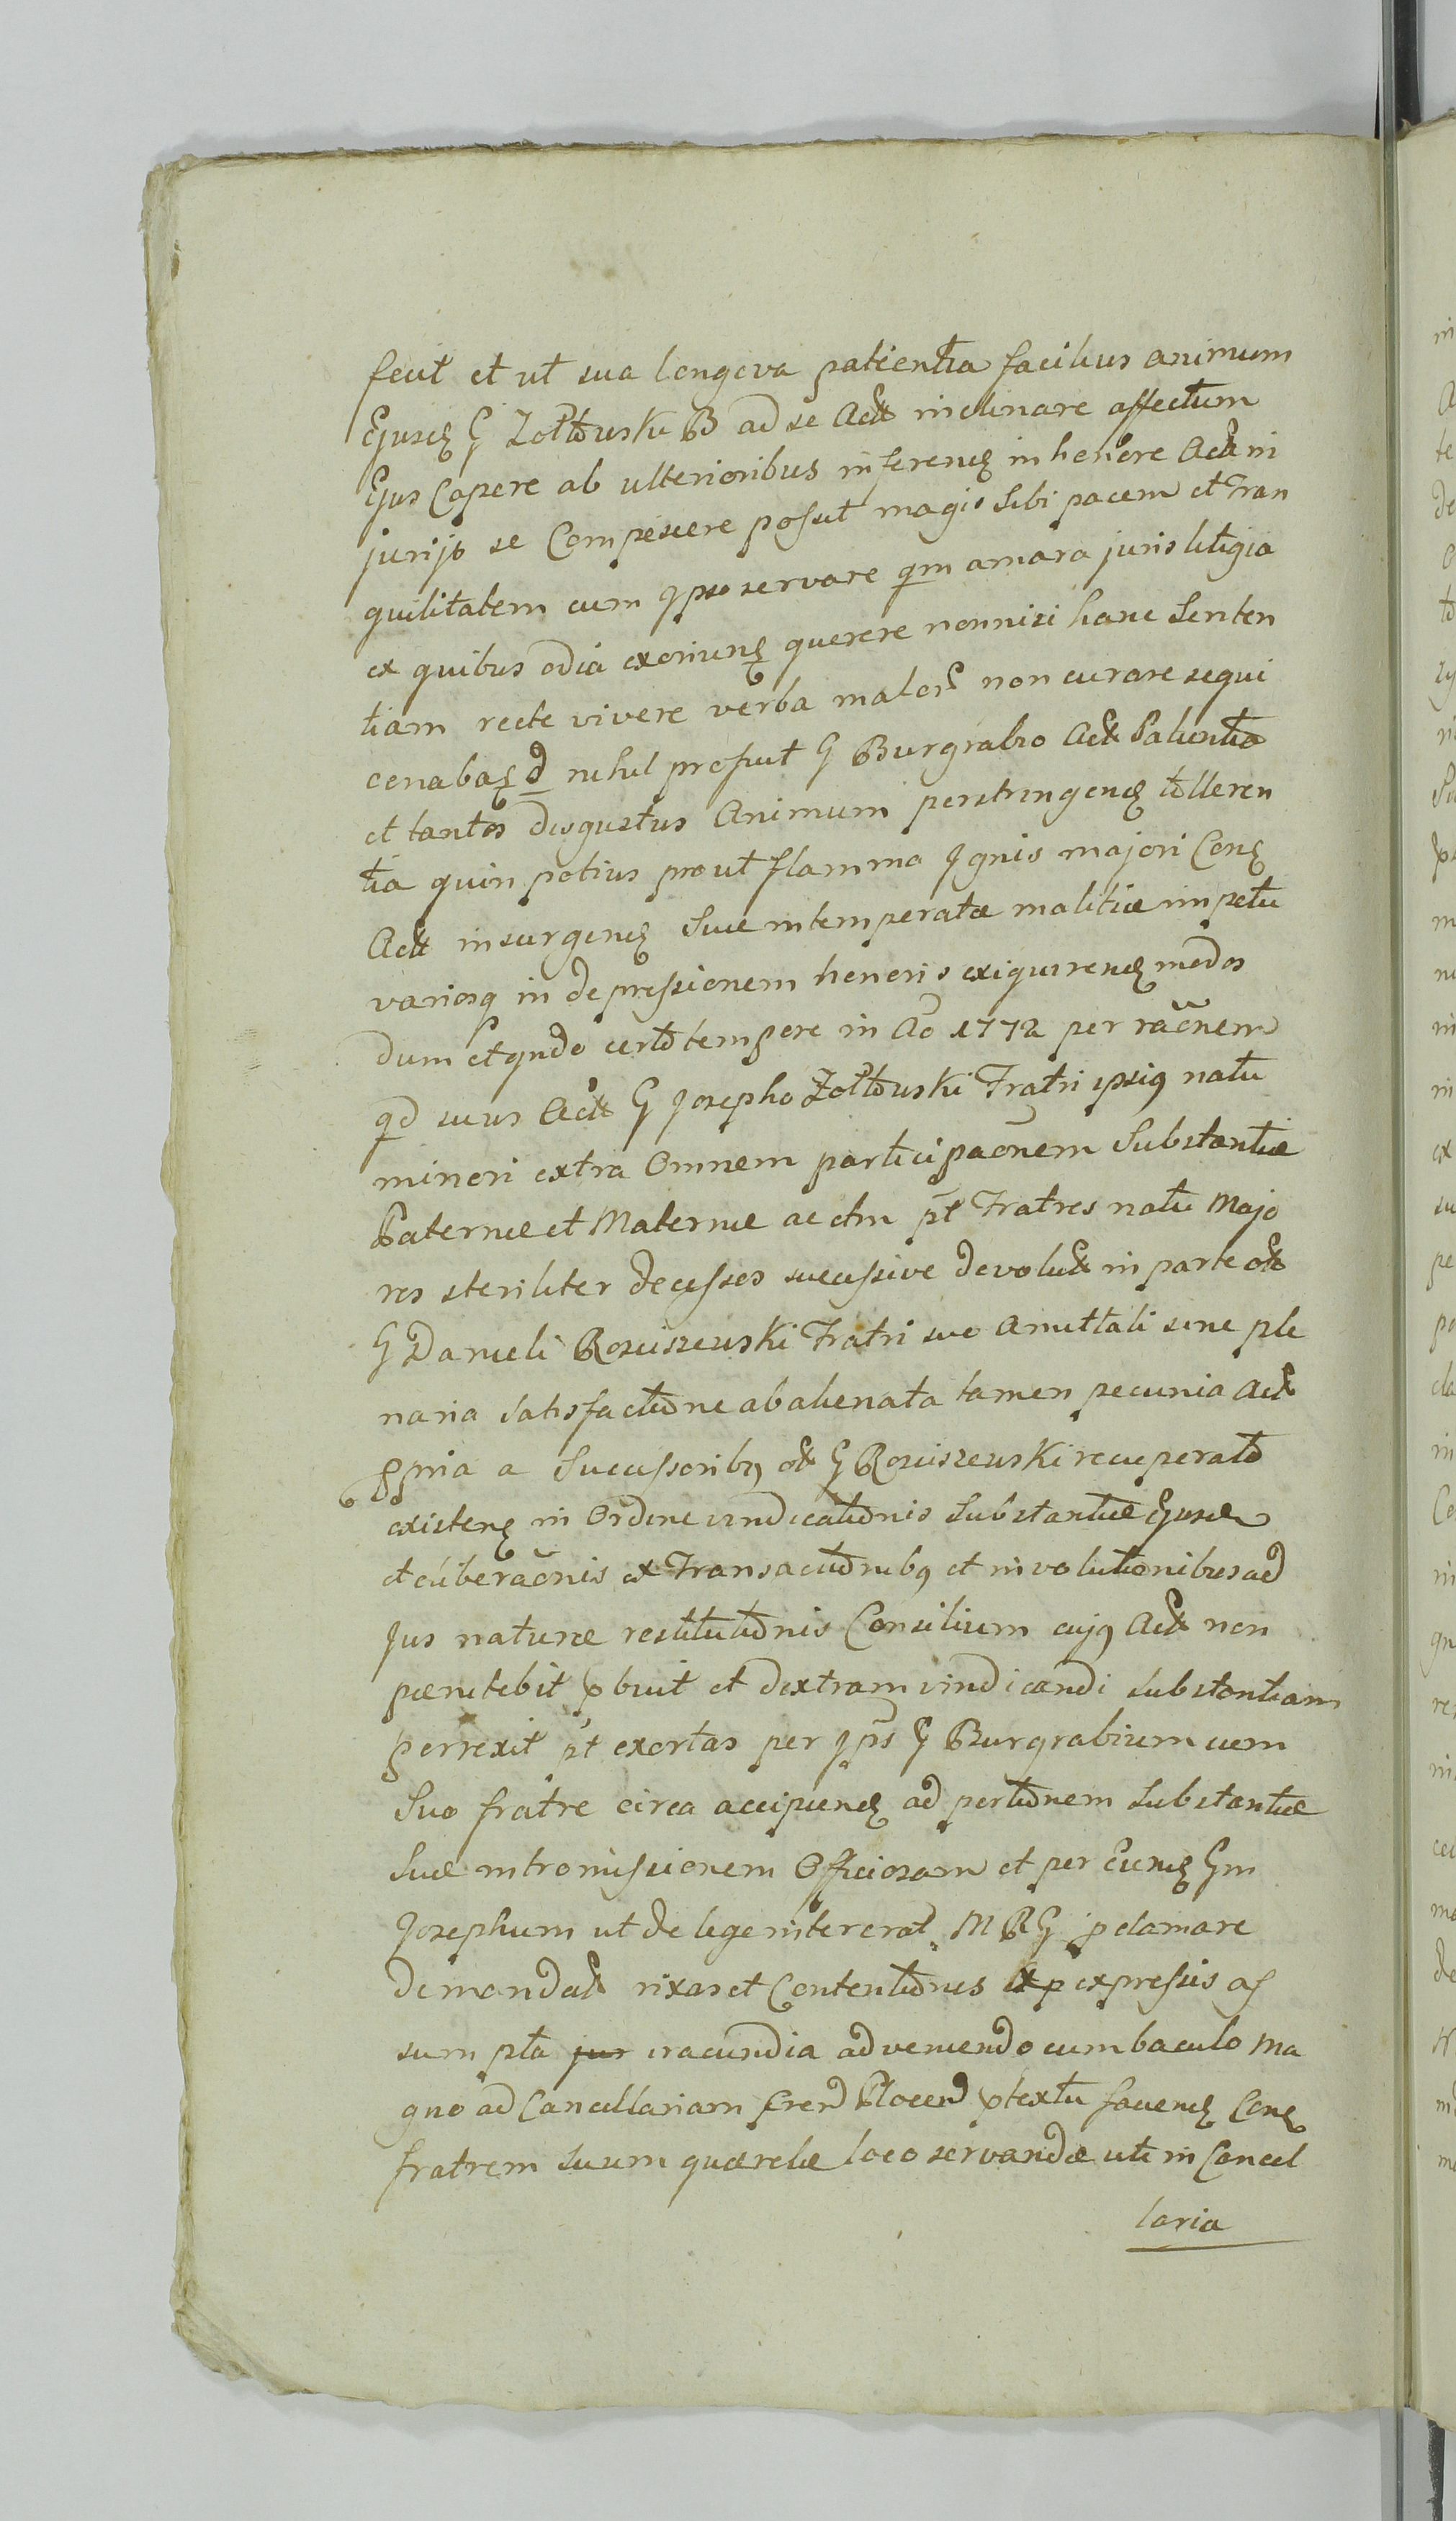 fecit et ut sua longeva patientia facilius animum
Ejusd G Zołtowski B ad se Act inclinare affectum
Ejus Capere ab ulterioribus inferend in honore Act in
jurijs se Compescere possit magis sibi pacem et Tran
quilitatem cum ipso servare qm amara juris litigia
ex quibus odia exoriunt querere nonnisi hanc Senten
tiam recte vivere verba malor non curare sequi
conabat nihil profuit G Burgrabio Act Patientia
et tantos disgustus Animum perstringend tolleren
tia quin potius prout flamma Ignis majori Con
Act insurgend Suae intemperatae malitiae impetu
variosq in depressionem honoris exiquirend modos
dum et qndo certo tempore in Ao 1772 per racnem
qd suus Act G Josepho Zołtowski Fratri ipsiq natu
minori extra Omnem participaonem Substantiae
Paternae et Maternae ac etm pt Fratres natu Majo
res steriliter decesses sucessive devolut in parte ol
G Danieli Rosciszewski Fratri suo Amittali sine ple
naria Satisfactione abalienata tamen pecunia Act
ppria a Sucessoribq ol G Rosciszewski recuperato
existend in Ordine vindicationis Substantiae Ejusd
et eliberacnis ex Transactionibq et involutionibus ad
Jus naturae restitutionis Consilium cujq Act non
paenitebit pbuit et dextram vindicandi substantiam
perrexit pt exortas per ips G Burgrabium cum
Suo fratre circa accipiend ad portionem Substantiae
Suae intromissionem Officiosam et per Eund Gm
Josephum ut de lege intererat M R G pclamare
demandat rixas et Contentiones exp expressis af
sum pta jur iracundia adveniendo cum baculo Ma
gno ad Cancellariam Cren Plocen ptextu favend Con
fratrem Suum quaerelae loco servandae uti in Cancel
laria